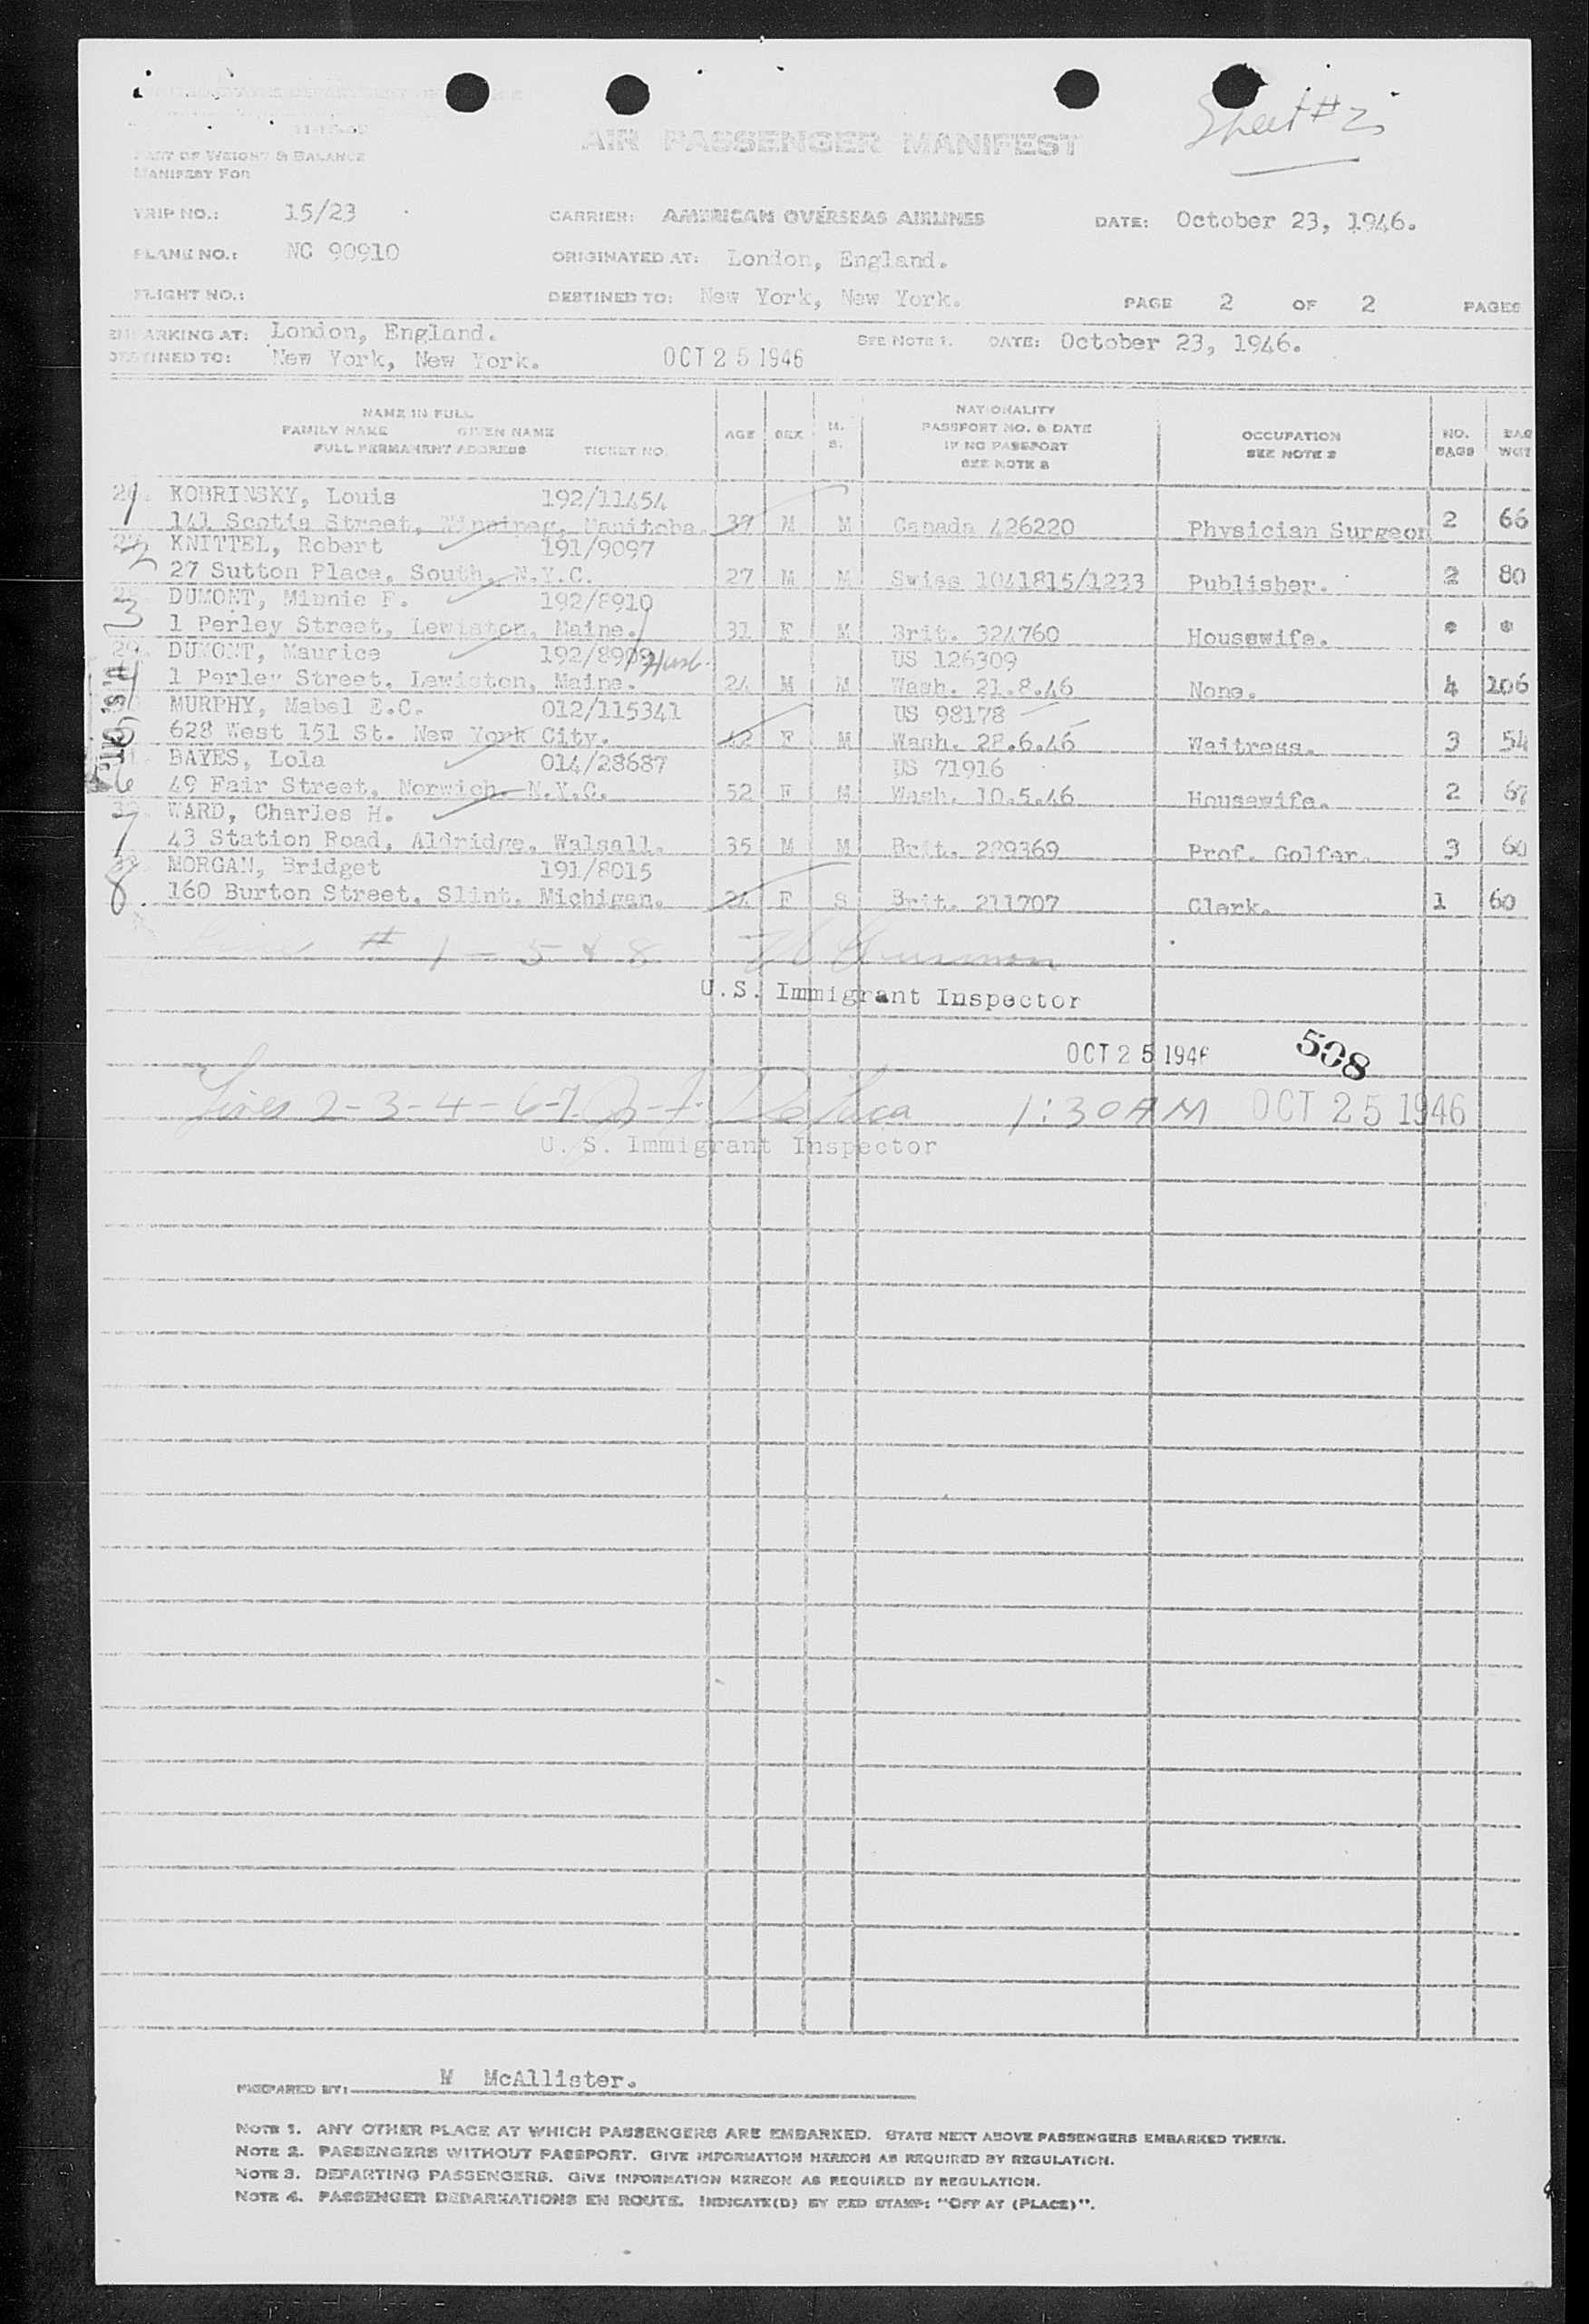 Sheet #2
AIR PASSENGER MANIFEST
PART OF WEIGHT & BALANCE
MANIFEST FOR
TRIP NO.: 15/23 CARRIER: AMERICAN OVERSEAS AIRLINES DATE: October 23, 1946.
PLANE NO.: NC 90910 ORIGINATED AT: London, England.
FLIGHT NO.: DESTINED TO: New York, New York. PAGE 2 OF 2 PAGES
EMBARKING AT: London, England. SEE NOTE 1. DATE: October 23, 1946.
DESTINED TO: New York, New York. OCT 25 1946
NAME IN FULL
FAMILY NAME GIVEN NAME
FULL PERMANENT ADDRESS TICKET NO.
AGE SEX M. S.
NATIONALITY
PASSPORT NO. & DATE
IF NO PASSPORT
SEE NOTE 2
OCCUPATION
SEE NOTE 3
NO. BAGS
BAG WGT
1 KOBRINSKY, Louis 192/11454
141 Scotia Street, Winnipeg, Manitoba. 37 M M Canada 426220 Physician Surgeon 2 66
2 KNITTEL, Robert 191/9097
27 Sutton Place, South, N.Y.C. 27 M M Swiss 1041815/1233 Publisher. 2 80
3 DUMONT, Minnie F. 192/8910
1 Perley Street, Lewiston, Maine. 31 F M Brit. 324760 Housewife. " "
29. DUMONT, Maurice 192/8909 Husb. US 126309
1 Perley Street, Lewiston, Maine. 24 M M Wash. 21.8.46 None. 4 106
MURPHY, Mabel E.C. 012/115341 US 98178
628 West 151 St. New York City. F M Wash. 28.6.46 Waitress. 3 54
BAYES, Lola 014/28687 US 71916
6 49 Fair Street, Norwich, N.Y.C. 52 F M Wash. 10.5.46 Housewife. 2 67
7 WARD, Charles H.
43 Station Road, Aldridge, Walsall. 35 M M Brit. 289369 Prof. Golfer. 3 60
MORGAN, Bridget 191/8015
8. 160 Burton Street, Slint, Michigan. 24 F S Brit. 211707 Clerk. 1 60
U.S. CIT.
# 1 - 5 & 8
U.S. Immigrant Inspector
OCT 25 1946 508
Lines 2-3-4-6-7. De Luca 1:30 AM OCT 25 1946
U. S. Immigrant Inspector
PREPARED BY: M McAllister.
NOTE 1. ANY OTHER PLACE AT WHICH PASSENGERS ARE EMBARKED. STATE NEXT ABOVE PASSENGERS EMBARKED THERE.
NOTE 2. PASSENGERS WITHOUT PASSPORT. GIVE INFORMATION HEREON AS REQUIRED BY REGULATION.
NOTE 3. DEPARTING PASSENGERS. GIVE INFORMATION HEREON AS REQUIRED BY REGULATION.
NOTE 4. PASSENGER DEBARKATIONS EN ROUTE. INDICATE(D) BY RED STAMP: "OFF AT (PLACE)".